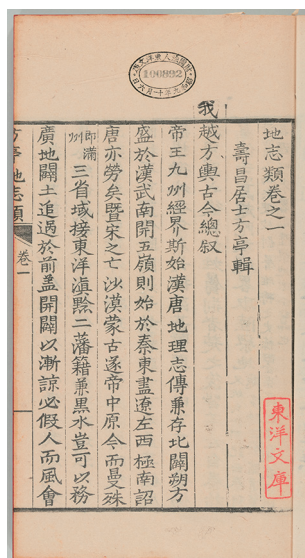 地志類卷之一
壽昌居士方亭輯
我
越方輿古今總叙
帝王九州經界斯始漢唐地理志傳兼存北闢朔方
盛於漢武南開五嶺則始於秦東盡遼左西極南詔
唐亦勞矣暨宋之亡沙漠蒙古遂帝中原今而曼殊
即滿
州
三省域接東洋滇黔二藩籍兼黑水豈可以務
廣地闢土追過於前盖開闢以漸諒必假人而風會
方亭地志類
卷一
東洋文庫
106892